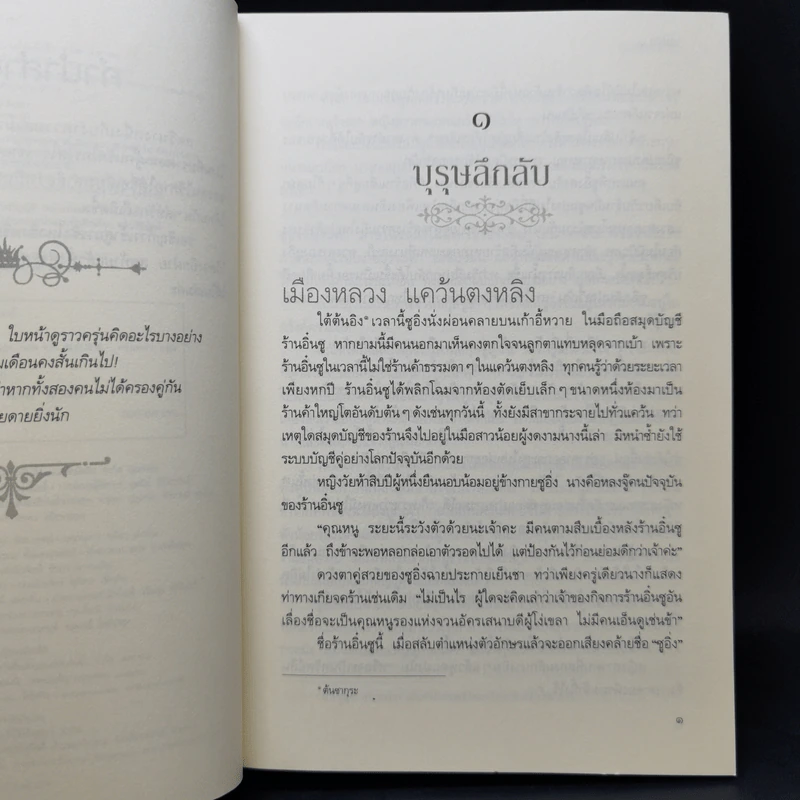 ใบหน้าดูราวครุ่นคิดอะไรบางอย่าง
มเดือนคงสั้นเกินไป!
าหากทั้งสองคนไม่ได้ครองคู่กัน
ยดายยิ่งนัก
๑
บุรุษลึกลับ
เมืองหลวง แคว้นตงหลิง
ใต้ต้นอิง* เวลานี้ซูอิ่งนั่งผ่อนคลายบนเก้าอี้หวาย ในมือถือสมุดบัญชี
ร้านอิ่นซู หากยามนี้มีคนนอกมาเห็นคงตกใจจนลูกตาแทบหลุดจากเบ้า เพราะ
ร้านอิ่นซูในเวลานี้ไม่ใช่ร้านค้าธรรมดาๆ ในแคว้นตงหลิง ทุกคนรู้ว่าด้วยระยะเวลา
เพียงหกปี ร้านอิ่นซูได้พลิกโฉมจากห้องตัดเย็บเล็กๆ ขนาดหนึ่งห้องมาเป็น
ร้านค้าใหญ่โตอันดับต้นๆ ดังเช่นทุกวันนี้ ทั้งยังมีสาขากระจายไปทั่วแคว้น ทว่า
เหตุใดสมุดบัญชีของร้านจึงไปอยู่ในมือสาวน้อยผู้งดงามนางนี้เล่า มิหนำซ้ำยังใช้
ระบบบัญชีคู่อย่างโลกปัจจุบันอีกด้วย
หญิงวัยห้าสิบปีผู้หนึ่งยืนนอบน้อมอยู่ข้างกายซูอิ่ง นางคือหลงจู๊คนปัจจุบัน
ของร้านอิ่นซู
“คุณหนู ระยะนี้ระวังตัวด้วยนะเจ้าคะ มีคนตามสืบเบื้องหลังร้านอิ่นซู
อีกแล้ว ถึงข้าจะพอหลอกล่อเอาตัวรอดไปได้ แต่ป้องกันไว้ก่อนย่อมดีกว่าเจ้าค่ะ”
ดวงตาคู่สวยของซูอิ่งฉายประกายเย็นชา ทว่าเพียงครู่เดียวนางก็แสดง
ท่าทางเกียจคร้านเช่นเดิม “ไม่เป็นไร ผู้ใดจะคิดเล่าว่าเจ้าของกิจการร้านอิ่นซูอัน
เลื่องชื่อจะเป็นคุณหนูรองแห่งจวนอัครเสนาบดีผู้โง่เขลา ไม่มีคนเอ็นดูเช่นข้า”
ชื่อร้านอิ่นซูนี้ เมื่อสลับตำแหน่งตัวอักษรแล้วจะออกเสียงคล้ายชื่อ “ซูอิ่ง”
* ต้นซากุระ
๑